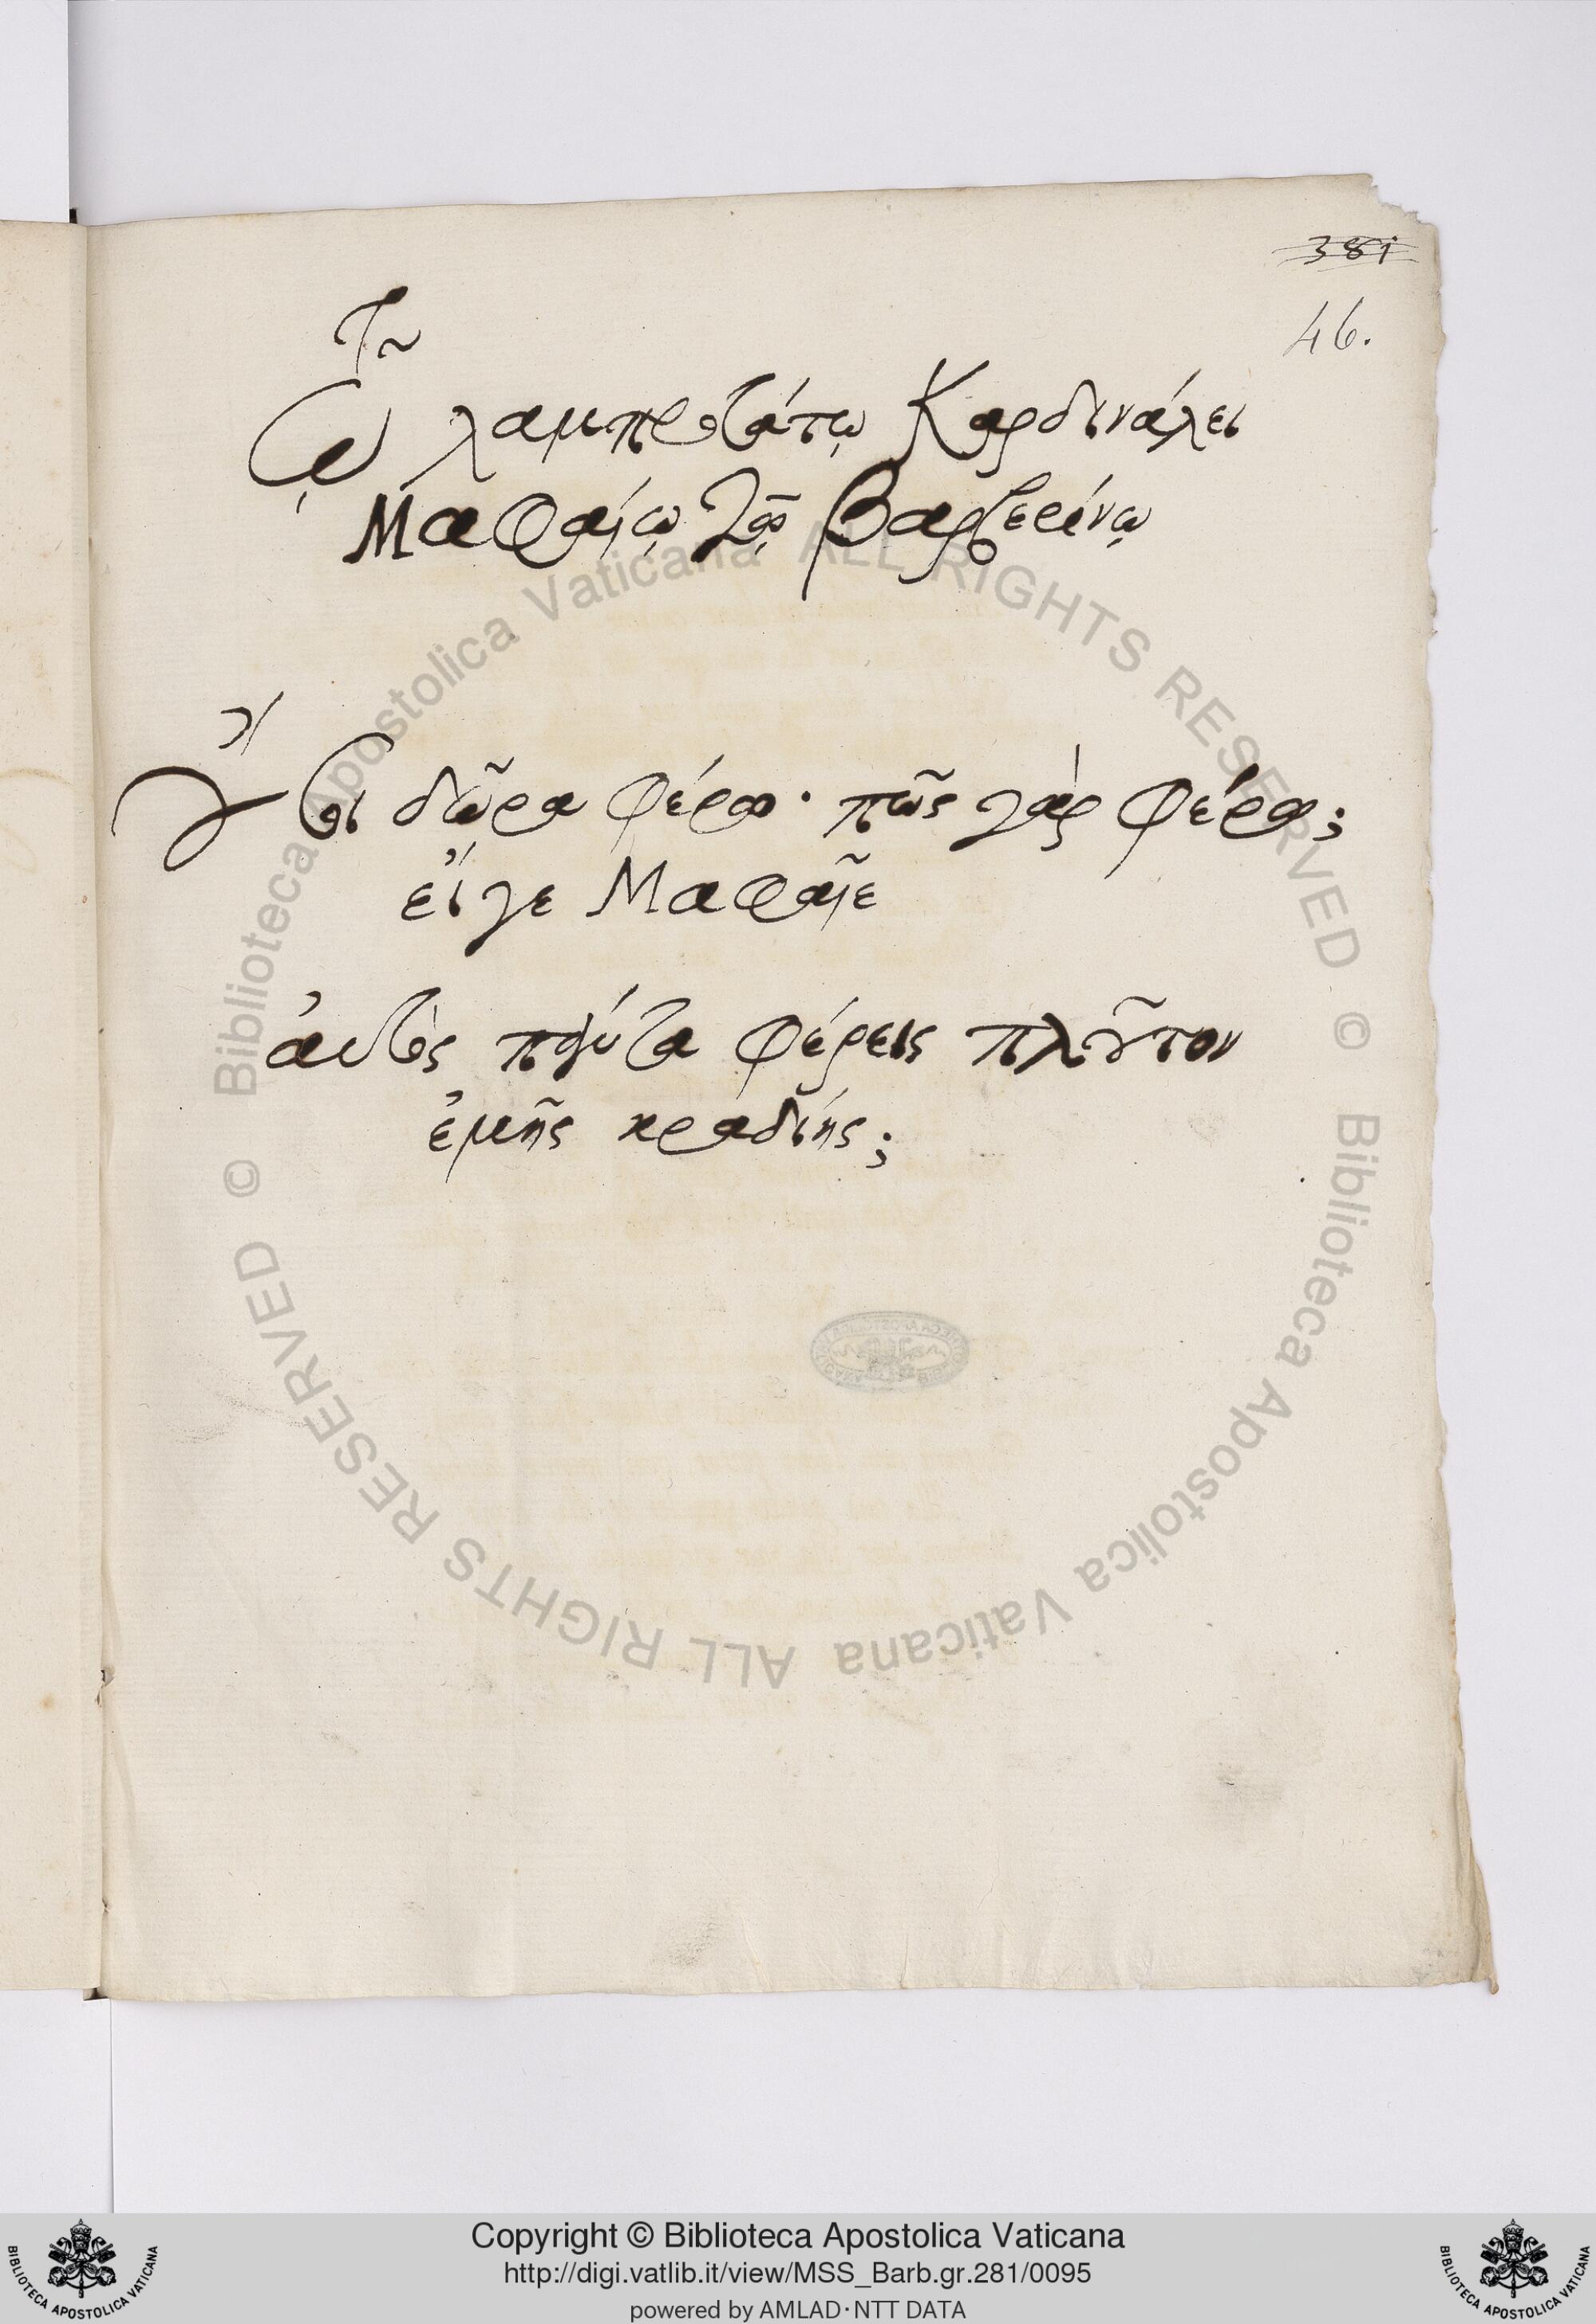 381
46.
Τῷ λαμπροτάτῳ Καρδινάλει
Μαφαίῳ τῷ Βαρβερίνῳ
Οὔτοι δῶρα φέρω· πῶς γὰρ φέρω;
εἴγε Μαφαῖε
αὐτὸς πάντα φέρεις πλοῦτον
ἐμῆς κραδίης;
© Biblioteca Apostolica Vaticana ALL RIGHTS RESERVED
© Biblioteca Apostolica Vaticana ALL RIGHTS RESERVED
Copyright © Biblioteca Apostolica Vaticana
http://digi.vatlib.it/view/MSS_Barb.gr.281/0095
powered by AMLAD·NTT DATA
BIBLIOTECA APOSTOLICA VATICANA
BIBLIOTECA APOSTOLICA VATICANA